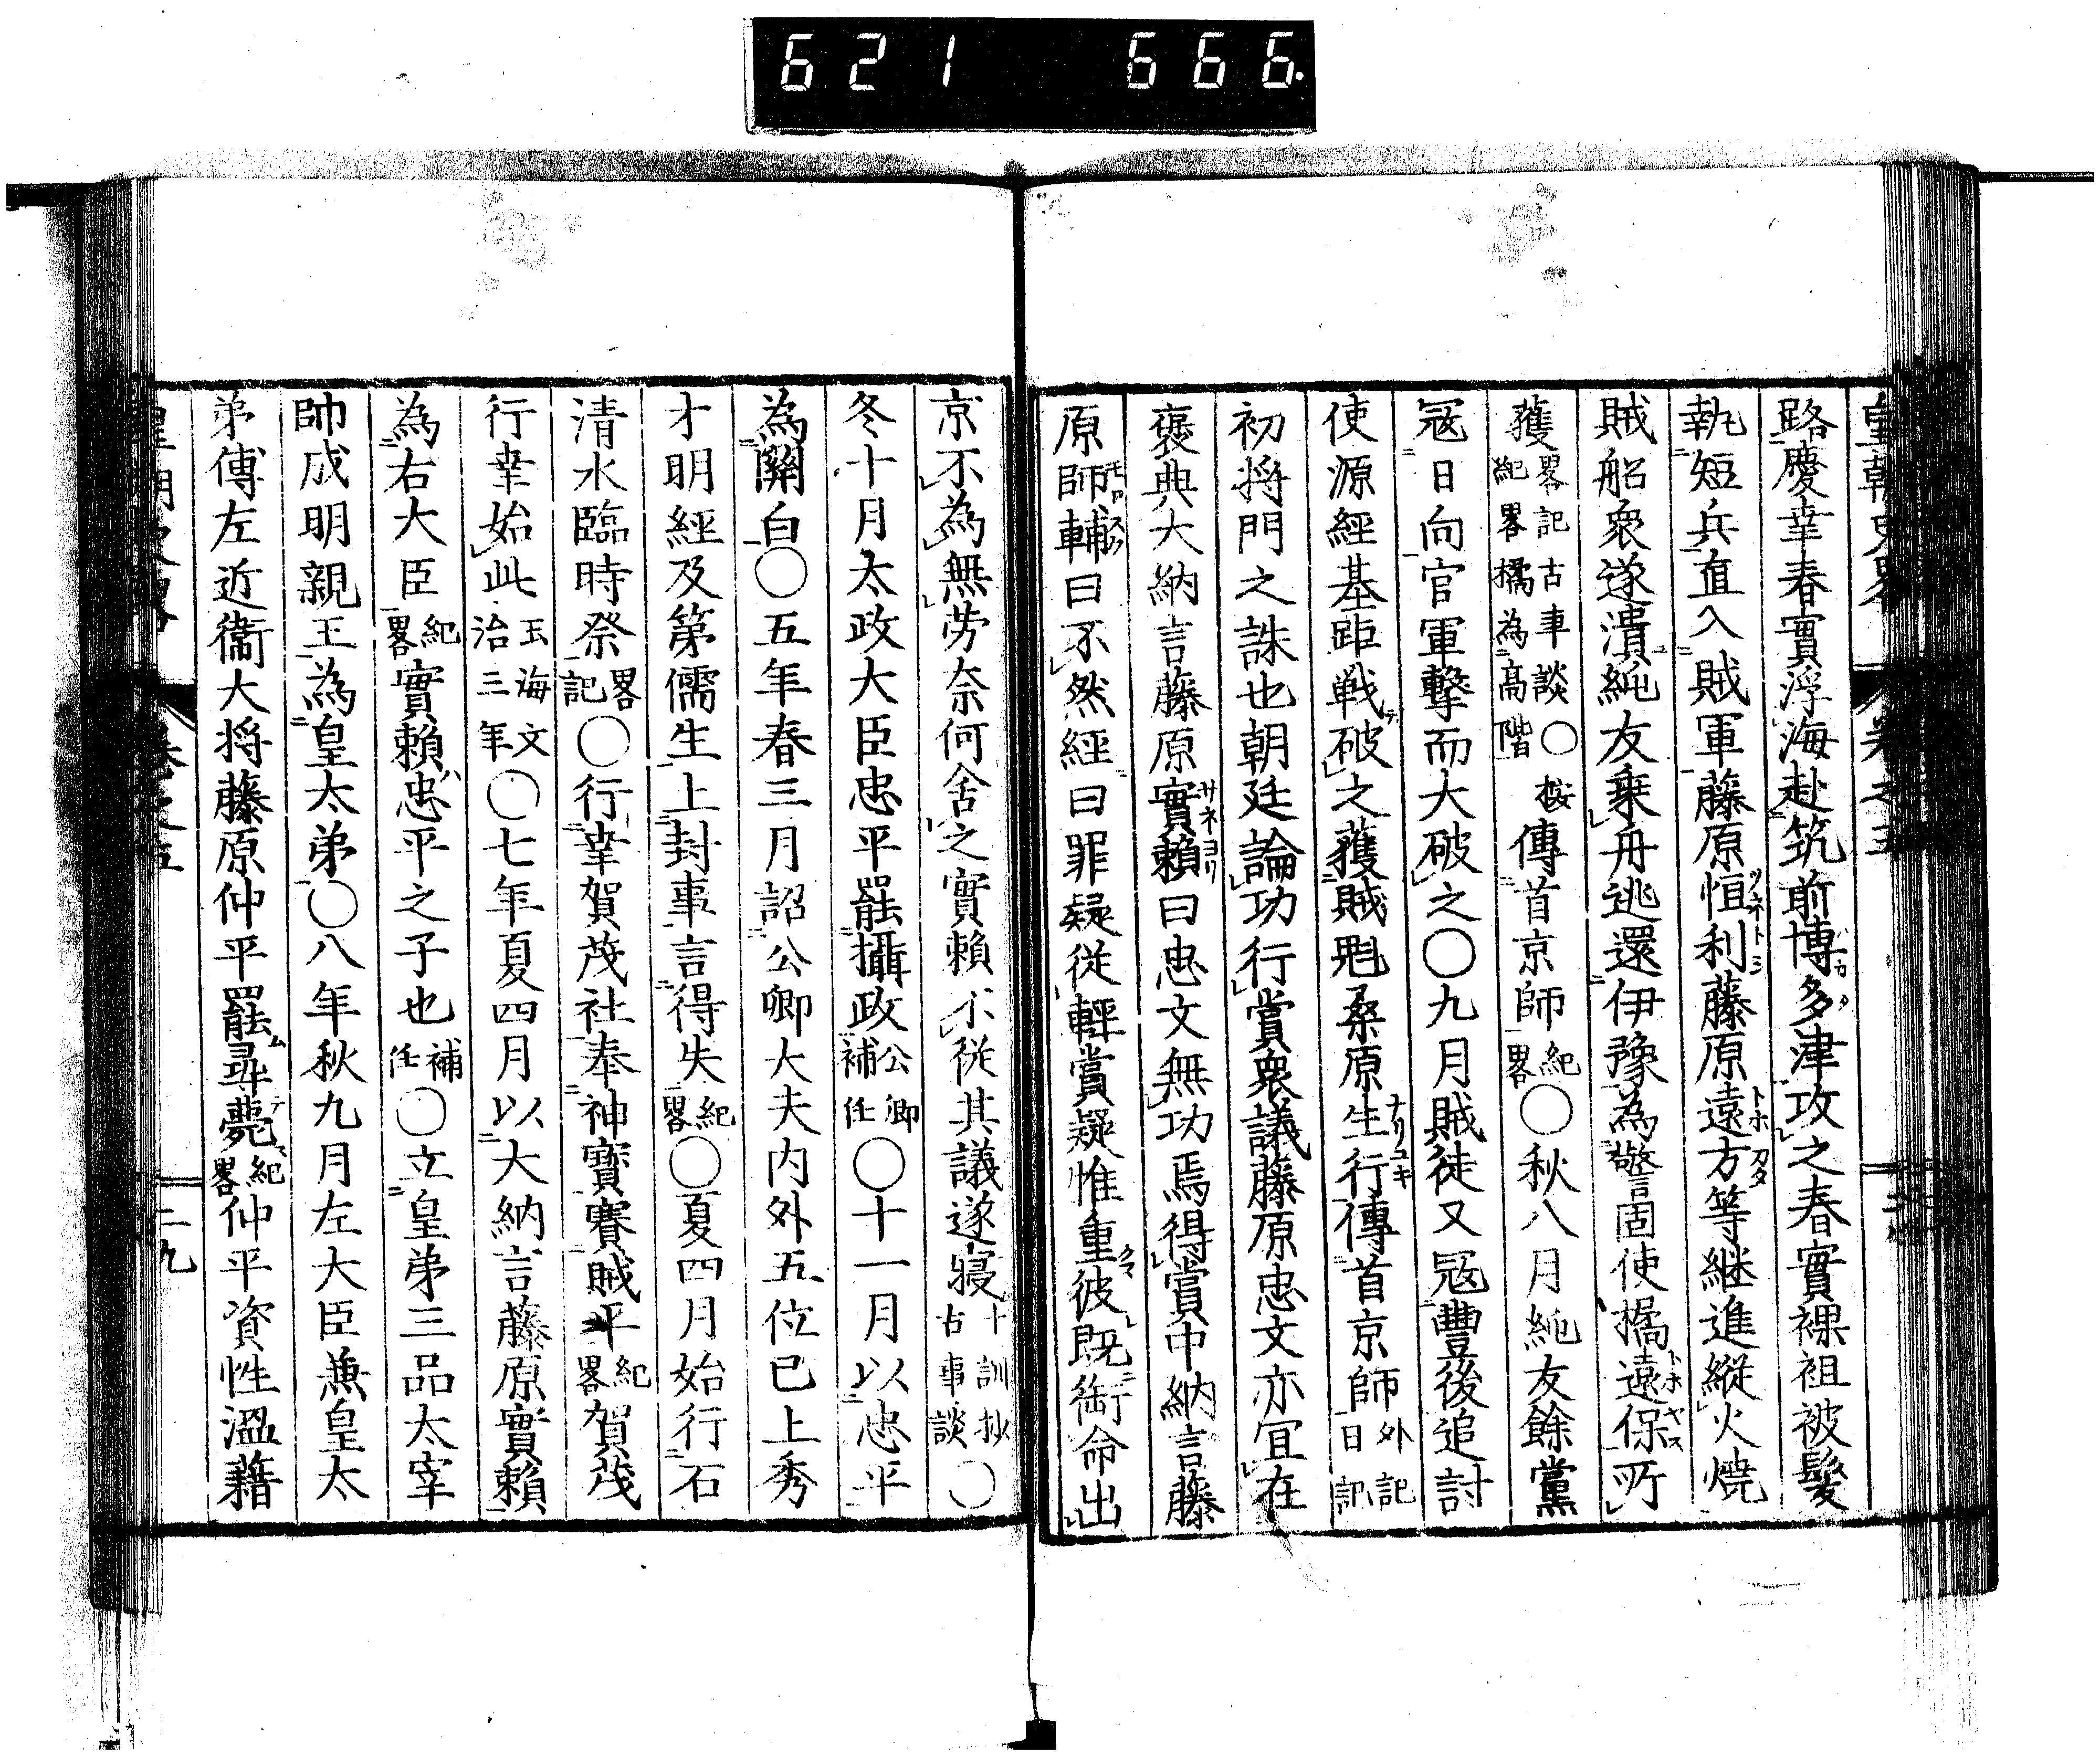 621 666
皇朝史畧 卷之五
路慶幸春實浮海赴筑前博多津攻之春實裸袒被髮
執短兵直入賊軍藤原恒利藤原遠方等継進縦火燒
賊船衆遂潰純友乗舟逃還伊豫為警固使橘遠保所
獲畧記古事談○按紀畧橘為高階傳首京師紀畧○秋八月純友餘黨
冦日向官軍擊而大破之○九月賊徒又冦豐後追討
使源經基距戦破之獲賊魁桑原生行傳首京師外記日記
初将門之誅也朝廷論功行賞衆議藤原忠文亦宜在
褒典大納言藤原實賴曰忠文無功焉得賞中納言藤
原師輔曰不然經曰罪疑從輕賞疑惟重彼既銜命出
京不為無勞奈何舍之實賴不從其議遂寢十訓抄古事談○
冬十月太政大臣忠平罷攝政公卿補任○十一月以忠平
為關白○五年春三月詔公卿大夫内外五位已上秀
才明經及第儒生上封事言得失紀畧○夏四月始行石
清水臨時祭畧記○行幸賀茂社奉神寶賽賊平紀畧賀茂
行幸始此玉海文治三年○七年夏四月以大納言藤原實賴
為右大臣紀畧實賴忠平之子也補任○立皇弟三品太宰
帥成明親王為皇太弟○八年秋九月左大臣兼皇太
弟傅左近衞大将藤原仲平罷尋薨紀畧仲平資性溫藉
皇朝史畧 卷之五 二九